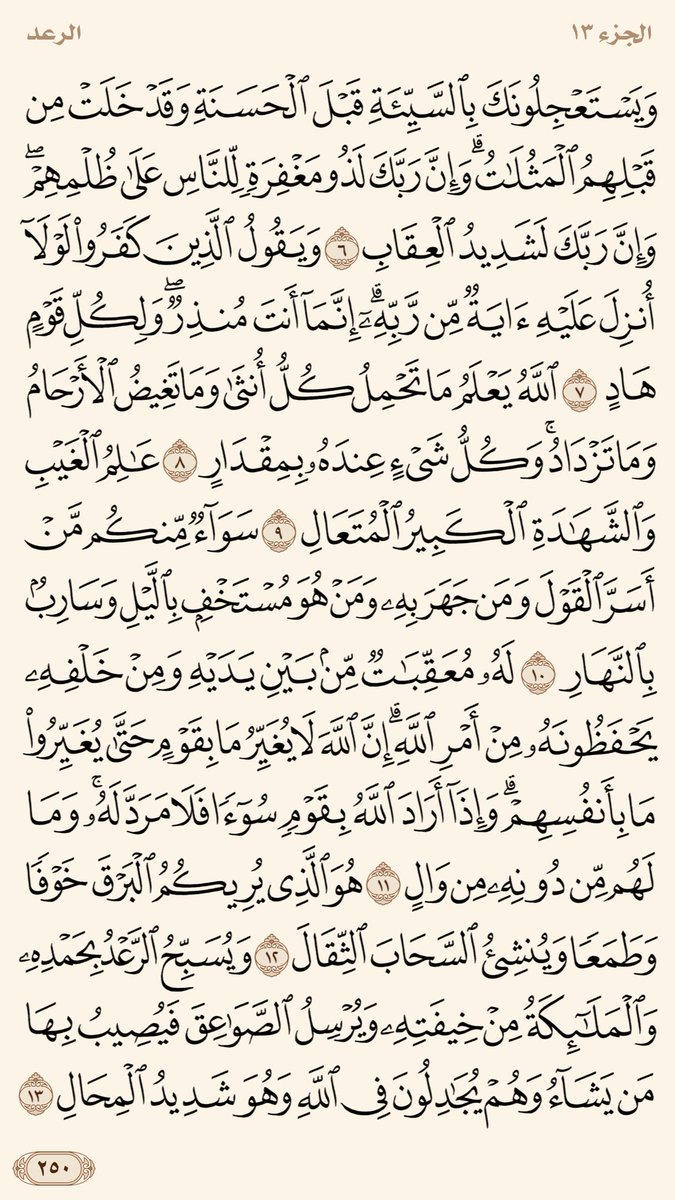 الجزء ١٣ الرعد
وَيَسْتَعْجِلُونَكَ بِٱلسَّيِّئَةِ قَبْلَ ٱلْحَسَنَةِ وَقَدْ خَلَتْ مِن
قَبْلِهِمُ ٱلْمَثُلَٰتُۗ وَإِنَّ رَبَّكَ لَذُو مَغْفِرَةٍ لِّلنَّاسِ عَلَىٰ ظُلْمِهِمْۖ
وَإِنَّ رَبَّكَ لَشَدِيدُ ٱلْعِقَابِ ٦ وَيَقُولُ ٱلَّذِينَ كَفَرُوا۟ لَوْلَآ
أُنزِلَ عَلَيْهِ ءَايَةٌ مِّن رَّبِّهِۦٓۗ إِنَّمَآ أَنتَ مُنذِرٌۖ وَلِكُلِّ قَوْمٍ
هَادٍ ٧ ٱللَّهُ يَعْلَمُ مَا تَحْمِلُ كُلُّ أُنثَىٰ وَمَا تَغِيضُ ٱلْأَرْحَامُ
وَمَا تَزْدَادُۚ وَكُلُّ شَىْءٍ عِندَهُۥ بِمِقْدَارٍ ٨ عَٰلِمُ ٱلْغَيْبِ
وَٱلشَّهَٰدَةِ ٱلْكَبِيرُ ٱلْمُتَعَالِ ٩ سَوَآءٌ مِّنكُم مَّنْ
أَسَرَّ ٱلْقَوْلَ وَمَن جَهَرَ بِهِۦ وَمَنْ هُوَ مُسْتَخْفٍۭ بِٱلَّيْلِ وَسَارِبٌۢ
بِٱلنَّهَارِ ١٠ لَهُۥ مُعَقِّبَٰتٌ مِّنۢ بَيْنِ يَدَيْهِ وَمِنْ خَلْفِهِۦ
يَحْفَظُونَهُۥ مِنْ أَمْرِ ٱللَّهِۗ إِنَّ ٱللَّهَ لَا يُغَيِّرُ مَا بِقَوْمٍ حَتَّىٰ يُغَيِّرُوا۟
مَا بِأَنفُسِهِمْۗ وَإِذَآ أَرَادَ ٱللَّهُ بِقَوْمٍ سُوٓءًا فَلَا مَرَدَّ لَهُۥۚ وَمَا
لَهُم مِّن دُونِهِۦ مِن وَالٍ ١١ هُوَ ٱلَّذِى يُرِيكُمُ ٱلْبَرْقَ خَوْفًا
وَطَمَعًا وَيُنشِئُ ٱلسَّحَابَ ٱلثِّقَالَ ١٢ وَيُسَبِّحُ ٱلرَّعْدُ بِحَمْدِهِۦ
وَٱلْمَلَٰٓئِكَةُ مِنْ خِيفَتِهِۦ وَيُرْسِلُ ٱلصَّوَٰعِقَ فَيُصِيبُ بِهَا
مَن يَشَآءُ وَهُمْ يُجَٰدِلُونَ فِى ٱللَّهِ وَهُوَ شَدِيدُ ٱلْمِحَالِ ١٣
٢٥٠